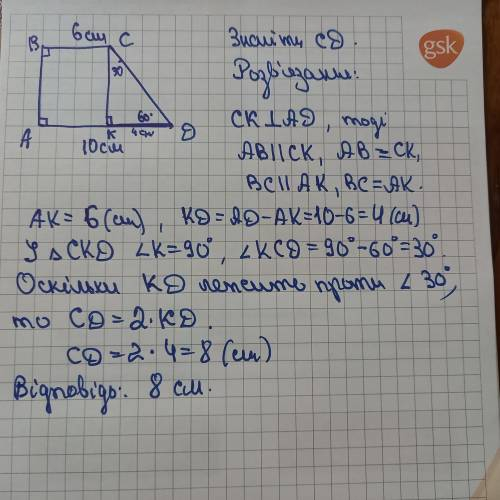 6см
B
C
30
60°
A
K
4см
D
10см
Знайти CD.
gsk
Розв'язання:
CK⊥AD, тоді
AB||CK, AB=CK,
BC||AK, BC=AK.
AK=6(см), KD=AD-AK=10-6=4(см)
У △CKD ∠K=90°, ∠KCD=90°-60°=30°.
Оскільки KD лежить проти ∠30°,
то CD=2·KD.
CD=2·4=8(см)
Відповідь: 8 см.